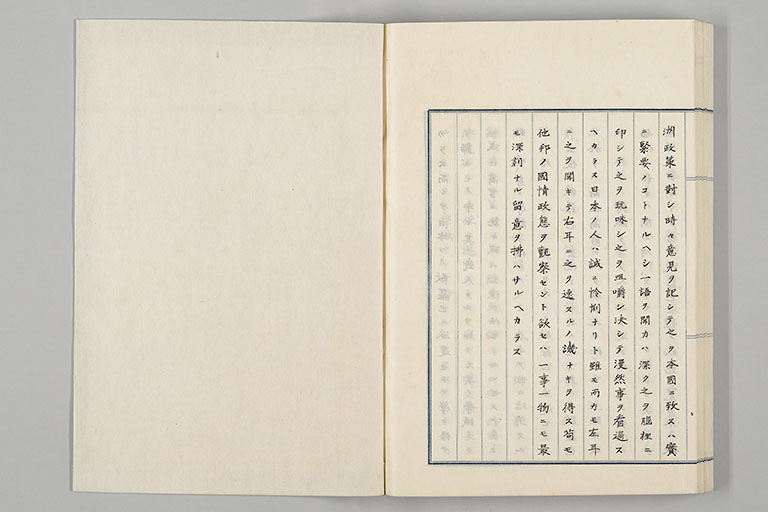 洲政策ニ對シ時々意見ヲ記シテ之ヲ本國ニ致スハ實
ニ緊要ノコトナルヘシ一語ヲ聞カハ深ク之ヲ腦裡ニ
印シテ之ヲ玩味シ之ヲ咀嚼シ決シテ漫然事ヲ看過ス
ヘカラス日本ノ人ハ誠ニ怜悧ナリト雖モ而カモ左耳
ニ之ヲ聞キテ右耳ニ之ヲ逸スルノ譏ナキヲ得ス苟モ
他邦ノ國情政態ヲ觀察セント欲セハ一事一物ニモ最
モ深刻ナル留意ヲ拂ハサルヘカラス